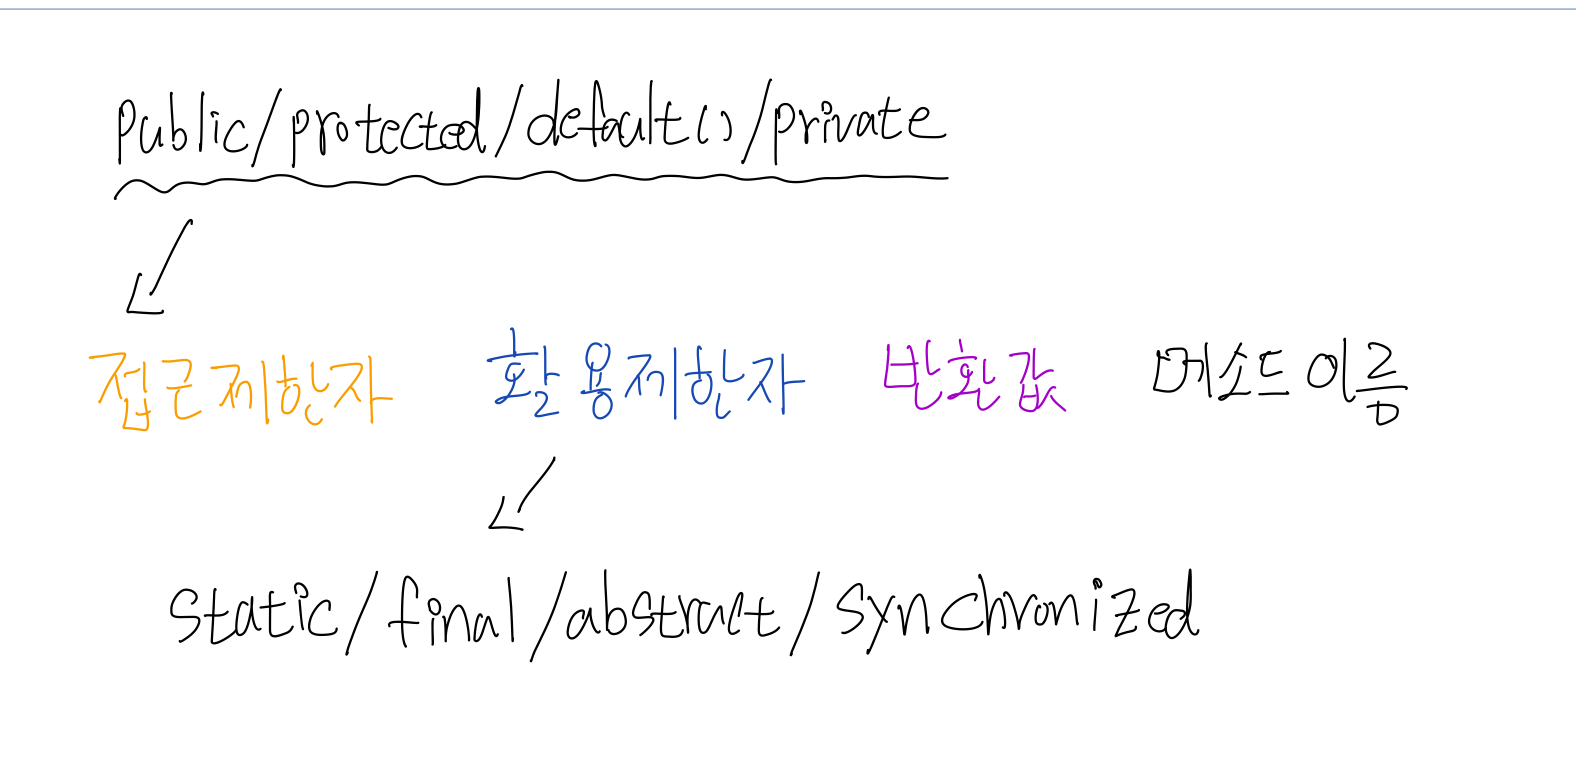 public/protected/default()/private
접근제한자 활용제한자 반환값 메소드이름
static/final/abstract/synchronized